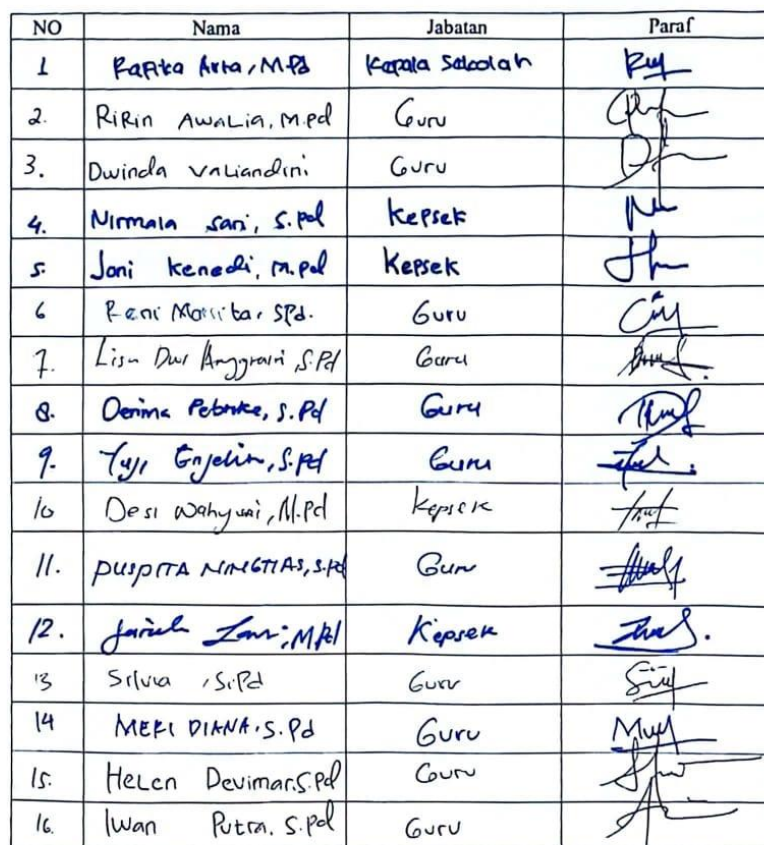 NO Nama Jabatan Paraf
1 Rafika Arta, M.Pd Kepala Sekolah
2. RiRin AwaLia, M.pd Guru
3. Dwinda VaLiandini Guru
4. Nirmala sari, S.pd kepsek
5. Joni kenedi, M.pd Kepsek
6 Reni , SPd. Guru
7. Lisa Dwi Anggraini, S.Pd Guru
8. Derima , S.Pd Guru
9. Yuji Enjelin, S.Pd Guru
10 Desi Wahyuni, M.Pd Kepsek
11. PUSPITA NINGTIAS, S.Pd Guru
12. M.Pd Kepsek
13 Silvia , S.Pd Guru
14 MEKI DIANA, S.Pd Guru
15. HeLen Devimar, S.Pd Guru
16. Iwan Putra, S.pd Guru